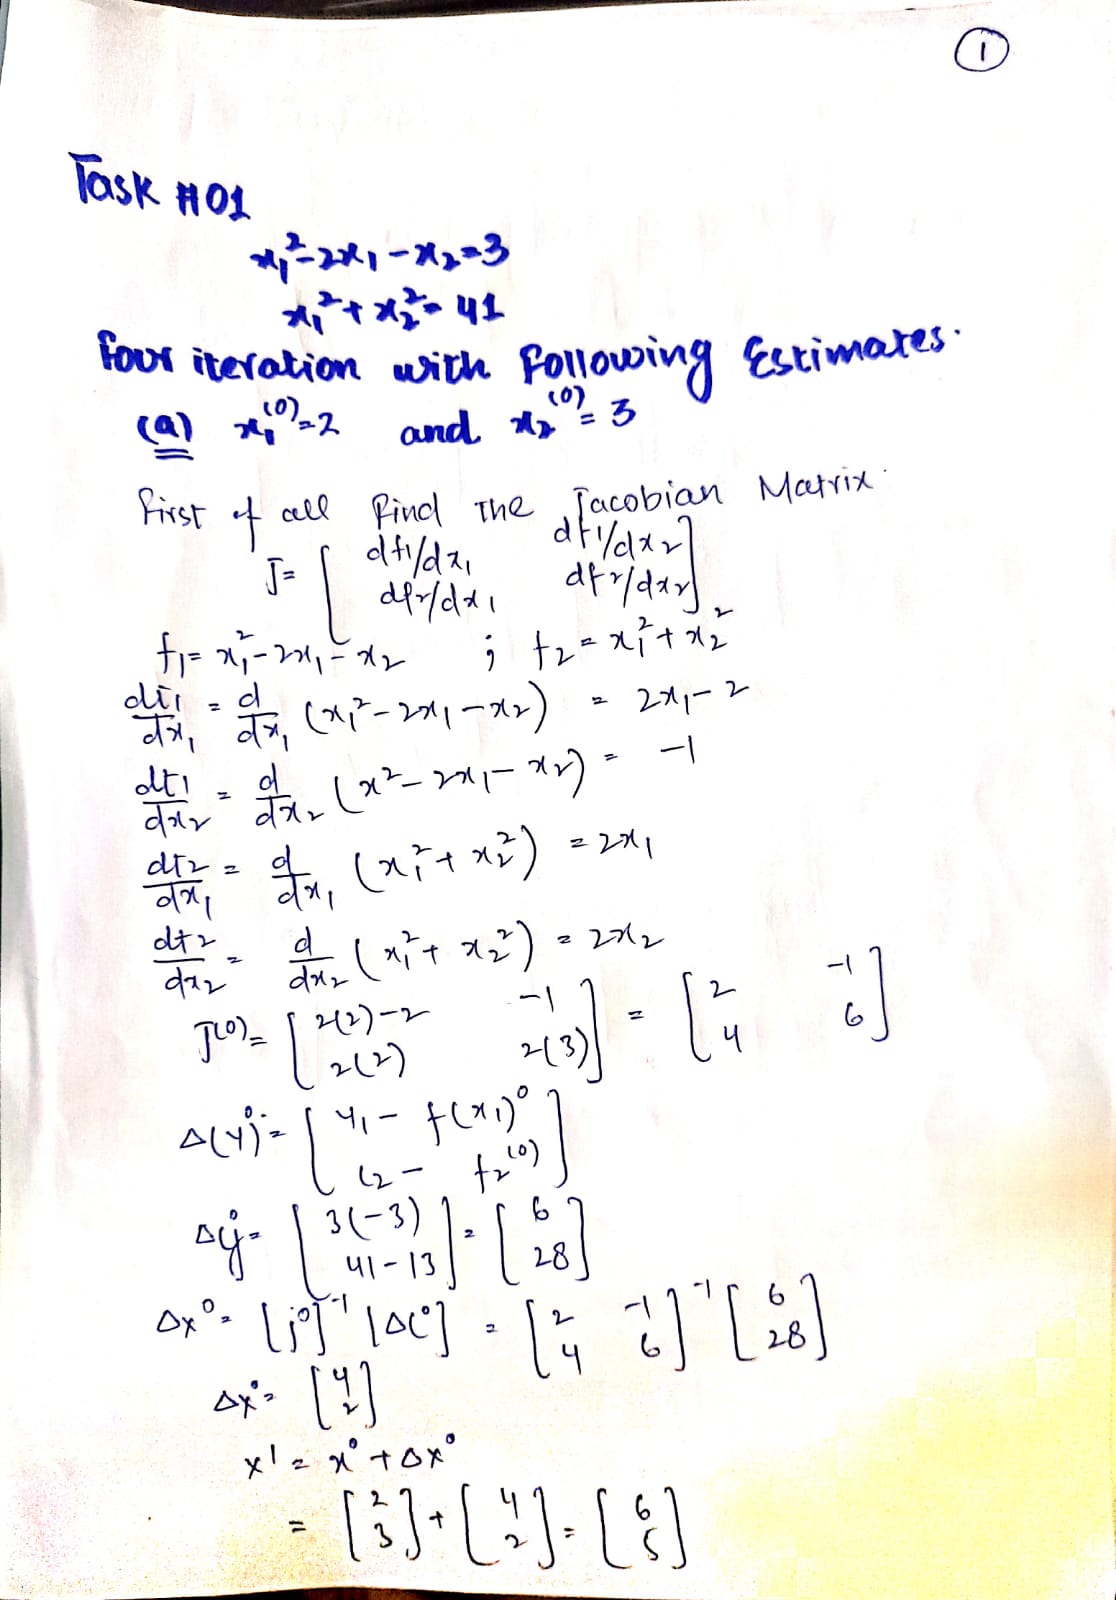 1
Task #01
x₁² - 2x₁ - x₂ = 3
x₁² + x₂² = 41
four iteration with following Estimates.
(a) x₁⁽⁰⁾ = 2 and x₂⁽⁰⁾ = 3
first of all find The Jacobian Matrix.
J = [ df1/dx₁ df1/dx₂
df2/dx₁ df2/dx₂ ]
f₁ = x₁² - 2x₁ - x₂ ; f₂ = x₁² + x₂²
df1/dx₁ = d/dx₁ (x₁² - 2x₁ - x₂) = 2x₁ - 2
df1/dx₂ = d/dx₂ (x² - 2x₁ - x₂) = -1
df2/dx₁ = d/dx₁ (x₁² + x₂²) = 2x₁
df2/dx₂ = d/dx₂ (x₁² + x₂²) = 2x₂
J⁽⁰⁾ = [ 2(2)-2 -1 ] = [ 2 -1
2(2) 2(3) ] 4 6 ]
Δ(y)⁰ = [ y₁ - f(x₁)⁰
c₂ - f₂⁽⁰⁾ ]
Δy⁰ = [ 3(-3) ] = [ 6
41-13 ] 28 ]
Δx⁰ = [j⁰]⁻¹ [Δc⁰] = [ 2 -1 ]⁻¹ [ 6
4 6 ] 28 ]
Δx⁰ = [ 4
2 ]
x¹ = x⁰ + Δx⁰
= [ 2 ] + [ 4 ] = [ 6
3 ] 2 ] 5 ]